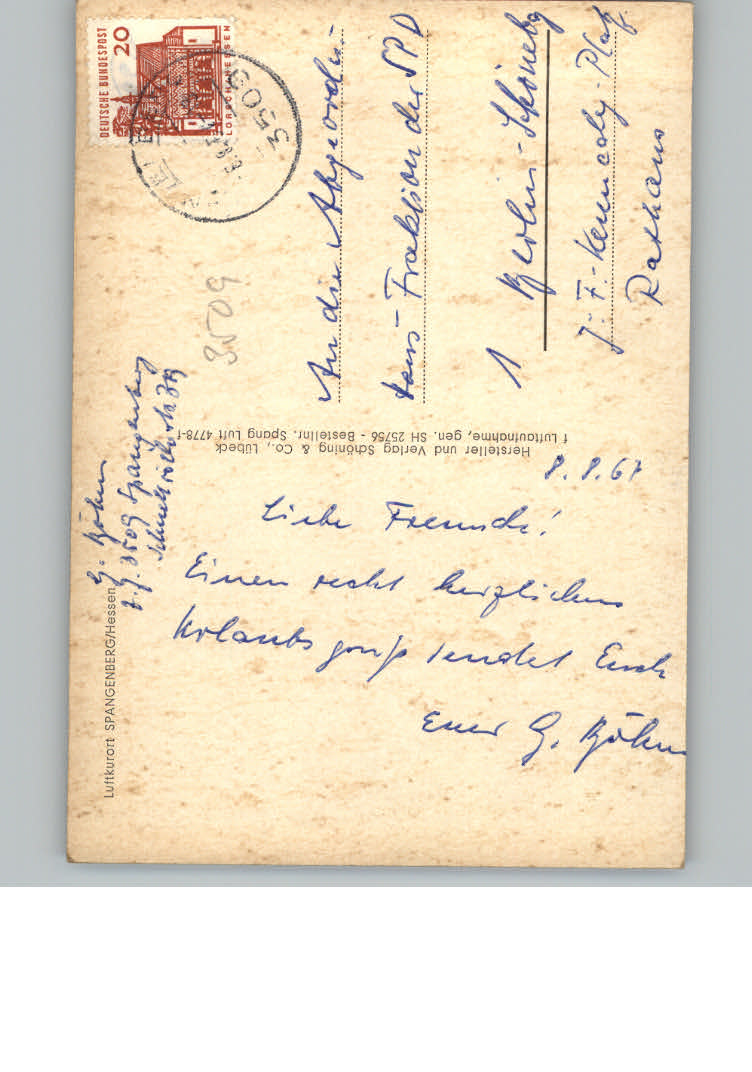 DEUTSCHE BUNDESPOST
20
LORSCH/HESSEN
3509
3509
An die Abgeordne-
ten-Fraktion der SPD
1 Berlin-Schönebg
J.-F.-Kennedy-Platz
Rathaus
Hersteller und Verlag Schöning & Co., Lübeck
f Luftaufnahme, gen. SH 25756 - Bestellnr. Spang Luft 4778-f
G. Böhm
z. Z. 3509 Spangenberg
Luftkurort SPANGENBERG/Hessen
8.8.67
Liebe Freunde!
Einen recht herzlichen
Urlaubsgruß sendet Euch
Euer G. Böhm